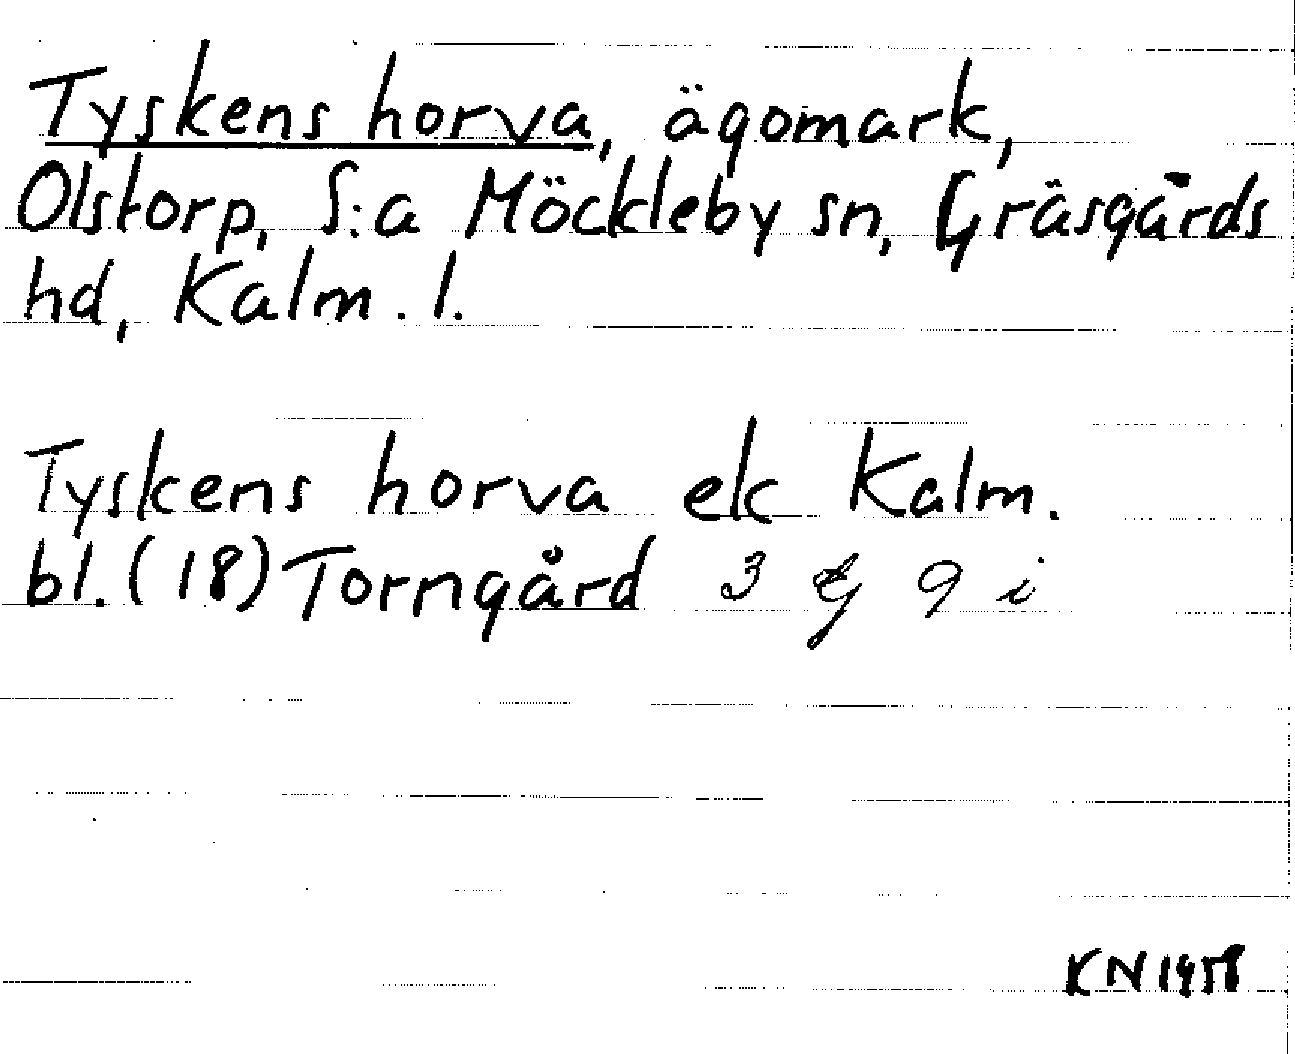 Tyskens horva, ägomark,
Olstorp, S:a Möckleby sn, Gräsgårds
hd, Kalm. l.
Tyskens horva ek Kalm.
bl. (18) Torngård 3 g 9 i
KN 1958